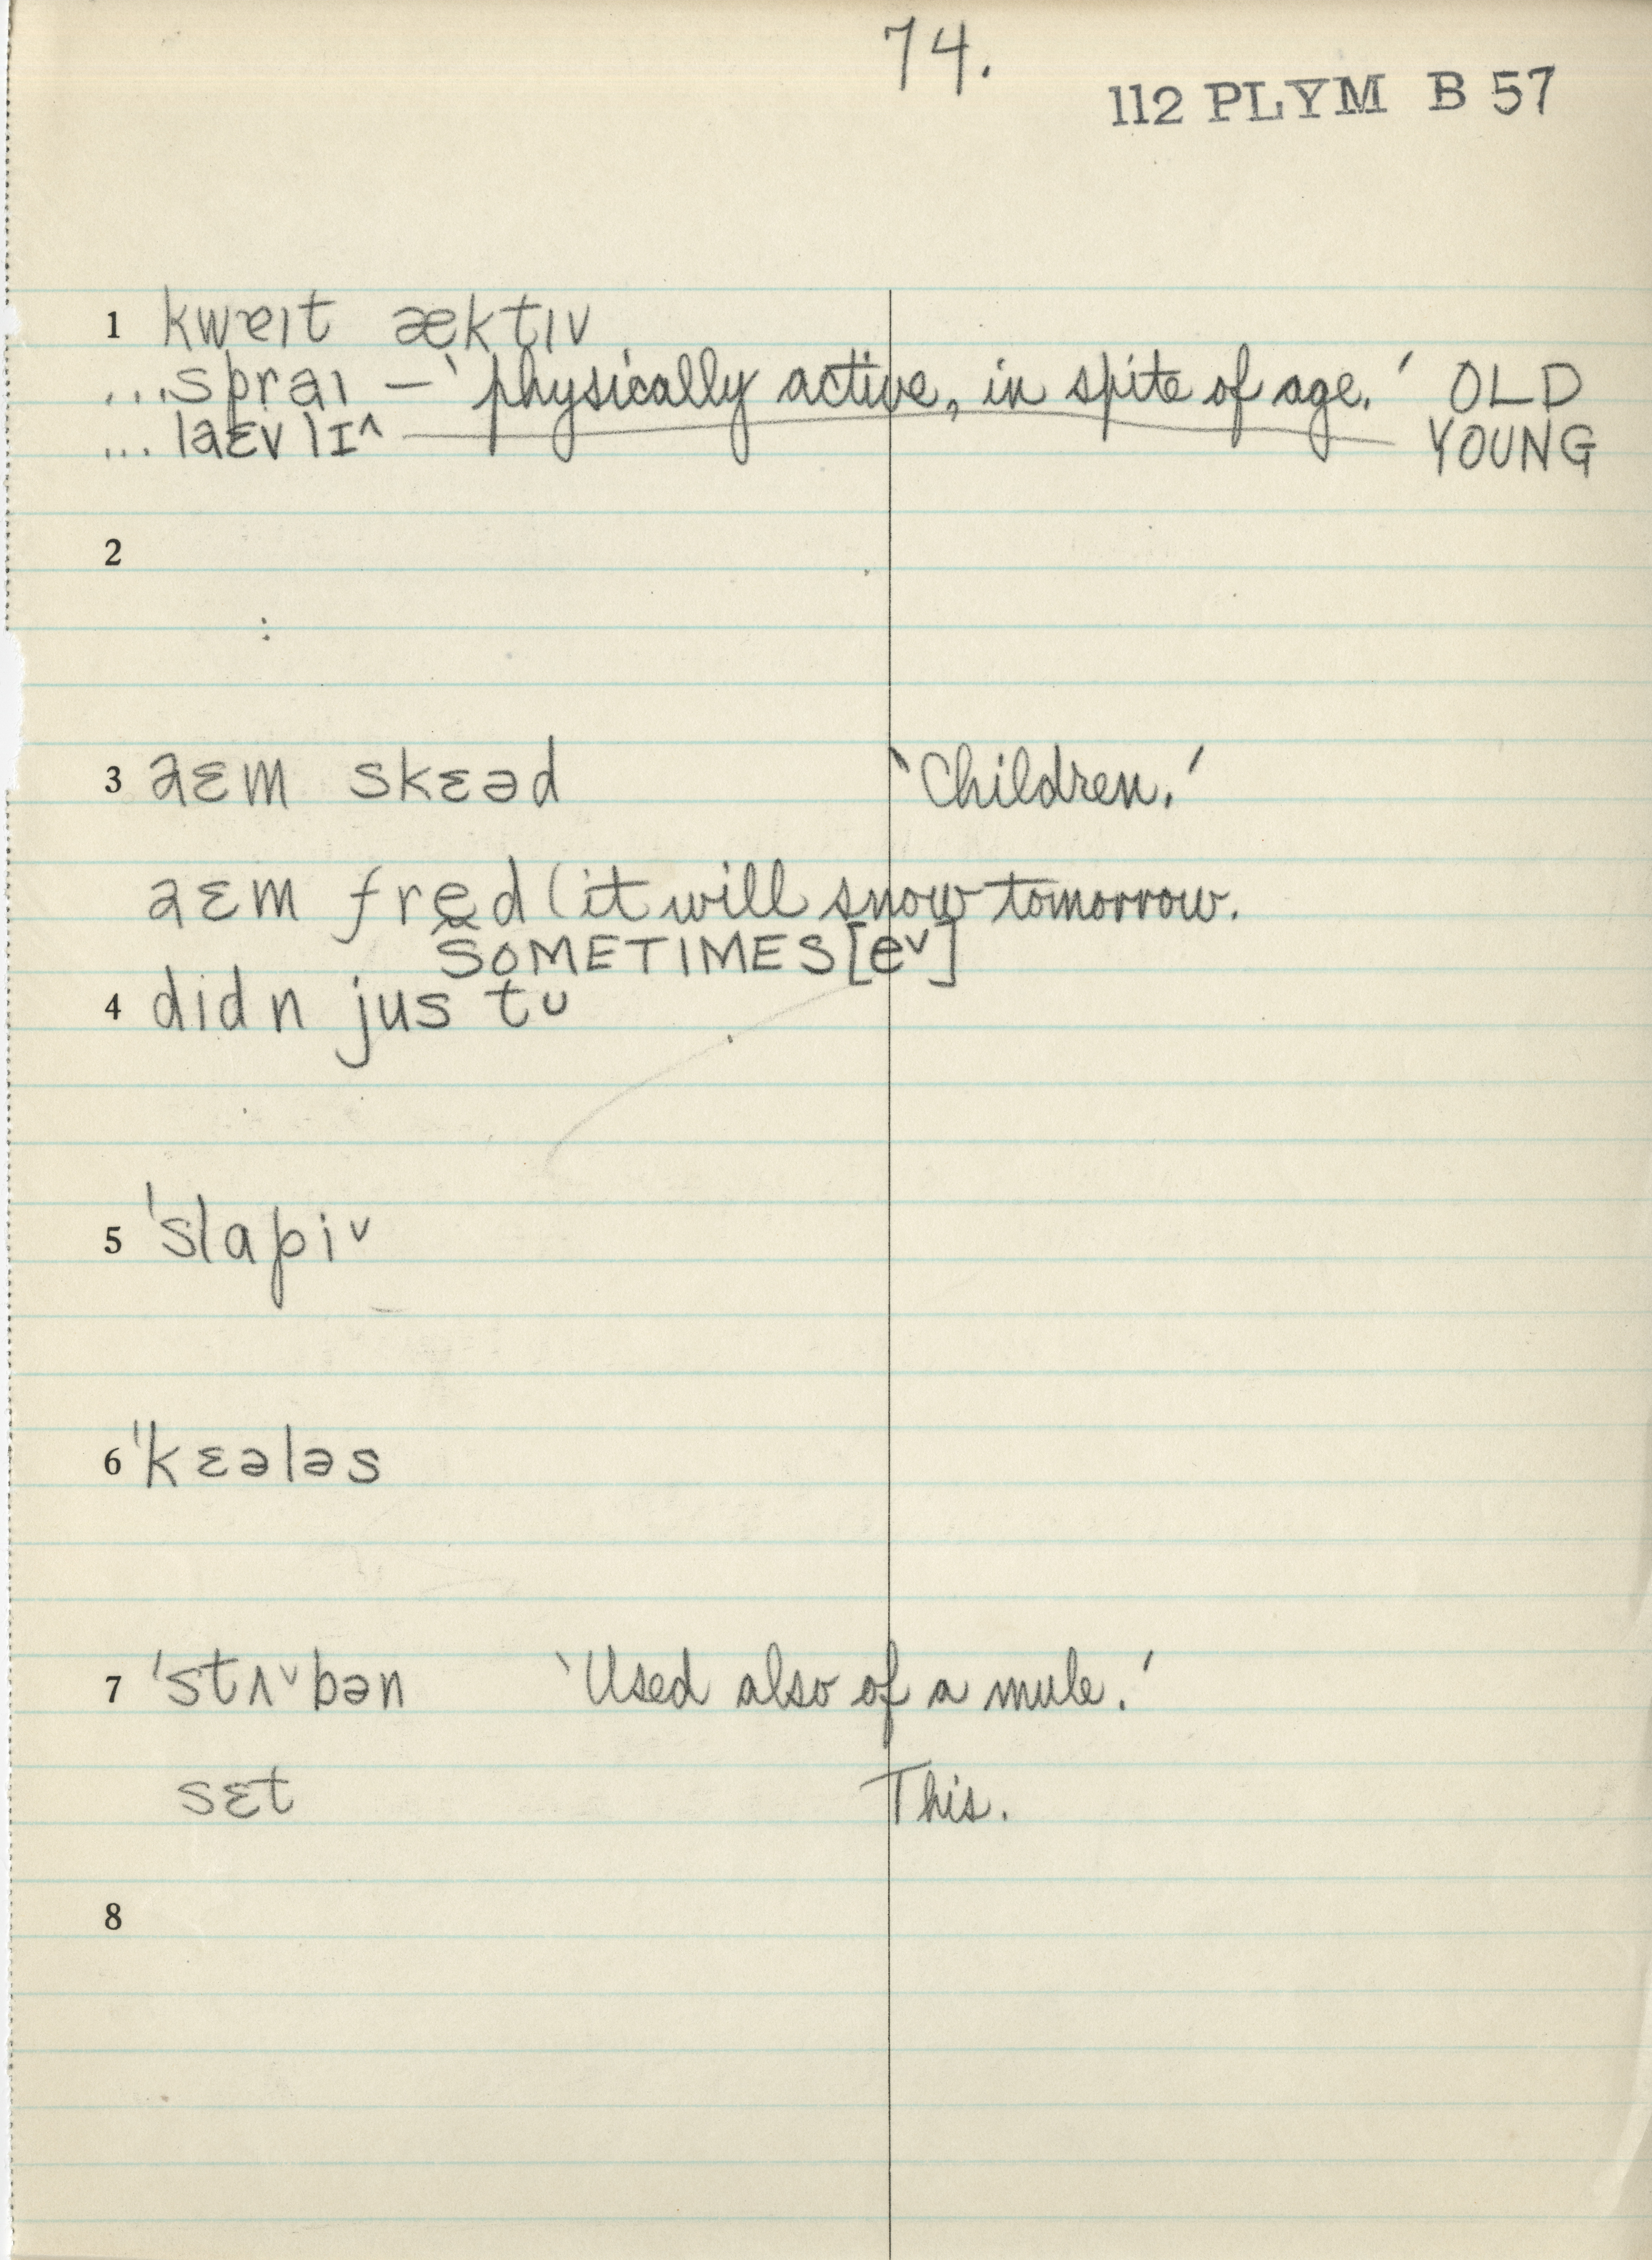 74.
112 PLYM B 57
1 kwɐɪt æktɪv
...spraɪ — ‘physically active, in spite of age.’ OLD
...laɛvlɪ^ YOUNG
2
3 aɛm skɛəd ‘Children.’
aɛm fred (it will snow tomorrow.
SOMETIMES [eˇ]
4 dɪdn jus tʊ
5 ˈslapiˇ
6 ˈkɛələs
7 ˈstʌˇbən ‘Used also of a mule.’
sɛt This.
8